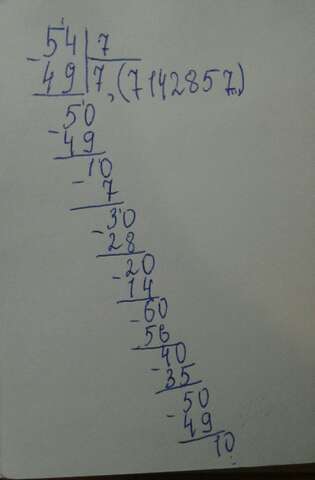 54|7
-49|7,(7142857)
50
-49
10
-7
30
-28
20
-14
60
-56
40
-35
50
-49
10